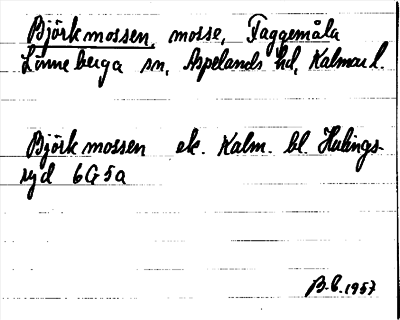 Björkmossen, mosse, Faggemåla
Lönneberga sn, Aspelands hd, Kalmar l.
Björkmossen ek. Kalm. bl Hulings-
ryd 6G5a
B.E. 1957